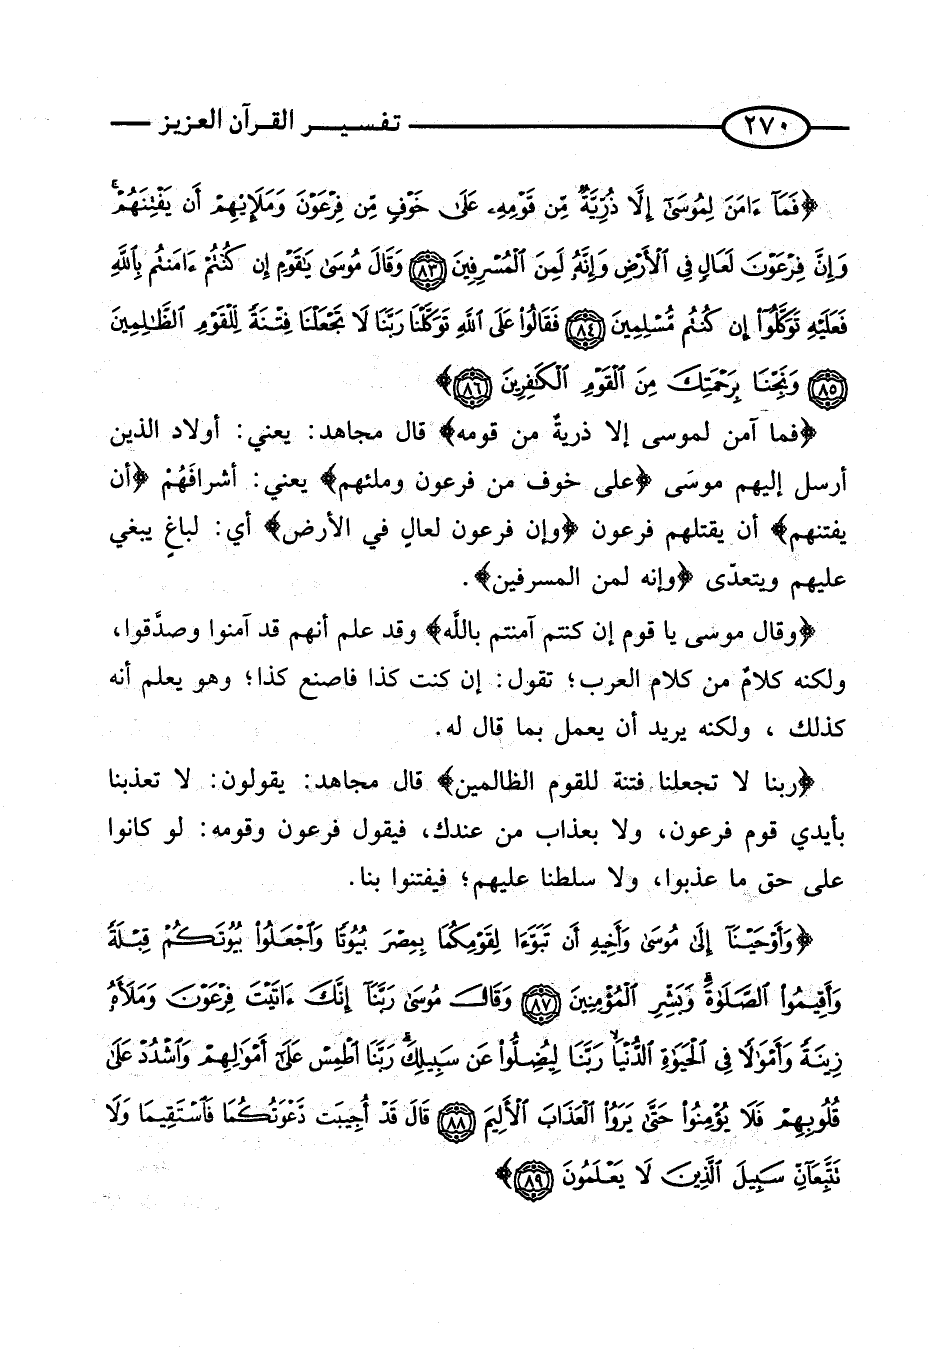 ٢٧٠ تفسير القرآن العزيز
﴿فَمَآ ءَامَنَ لِمُوسَىٰٓ إِلَّا ذُرِّيَّةٌ مِّن قَوْمِهِۦ عَلَىٰ خَوْفٍ مِّن فِرْعَوْنَ وَمَلَإِيْهِمْ أَن يَفْتِنَهُمْ ۚ
وَإِنَّ فِرْعَوْنَ لَعَالٍ فِى ٱلْأَرْضِ وَإِنَّهُۥ لَمِنَ ٱلْمُسْرِفِينَ ﴿٨٣﴾ وَقَالَ مُوسَىٰ يَٰقَوْمِ إِن كُنتُمْ ءَامَنتُم بِٱللَّهِ
فَعَلَيْهِ تَوَكَّلُوٓا۟ إِن كُنتُم مُّسْلِمِينَ ﴿٨٤﴾ فَقَالُوا۟ عَلَى ٱللَّهِ تَوَكَّلْنَا رَبَّنَا لَا تَجْعَلْنَا فِتْنَةً لِّلْقَوْمِ ٱلظَّٰلِمِينَ
﴿٨٥﴾ وَنَجِّنَا بِرَحْمَتِكَ مِنَ ٱلْقَوْمِ ٱلْكَٰفِرِينَ ﴿٨٦﴾﴾
﴿فما آمن لموسى إلا ذريةٌ من قومه﴾ قال مجاهد: يعني: أولاد الذين
أرسل إليهم موسَى ﴿على خوف من فرعون وملئهم﴾ يعني: أشرافَهُمْ ﴿أن
يفتنهم﴾ أن يقتلهم فرعون ﴿وإن فرعون لعالٍ في الأرض﴾ أي: لباغٍ يبغي
عليهم ويتعدّى ﴿وإنه لمن المسرفين﴾.
﴿وقال موسى يا قوم إن كنتم آمنتم باللَّه﴾ وقد علم أنهم قد آمنوا وصدَّقوا،
ولكنه كلامٌ من كلام العرب؛ تقول: إن كنت كذا فاصنع كذا؛ وهو يعلم أنه
كذلك ، ولكنه يريد أن يعمل بما قال له.
﴿ربنا لا تجعلنا فتنة للقوم الظالمين﴾ قال مجاهد: يقولون: لا تعذبنا
بأيدي قوم فرعون، ولا بعذاب من عندك، فيقول فرعون وقومه: لو كانوا
على حق ما عذبوا، ولا سلطنا عليهم؛ فيفتنوا بنا.
﴿وَأَوْحَيْنَآ إِلَىٰ مُوسَىٰ وَأَخِيهِ أَن تَبَوَّءَا لِقَوْمِكُمَا بِمِصْرَ بُيُوتًا وَٱجْعَلُوا۟ بُيُوتَكُمْ قِبْلَةً
وَأَقِيمُوا۟ ٱلصَّلَوٰةَ ۗ وَبَشِّرِ ٱلْمُؤْمِنِينَ ﴿٨٧﴾ وَقَالَ مُوسَىٰ رَبَّنَآ إِنَّكَ ءَاتَيْتَ فِرْعَوْنَ وَمَلَأَهُۥ
زِينَةً وَأَمْوَٰلًا فِى ٱلْحَيَوٰةِ ٱلدُّنْيَا ۙ رَبَّنَا لِيُضِلُّوا۟ عَن سَبِيلِكَ ۖ رَبَّنَا ٱطْمِسْ عَلَىٰٓ أَمْوَٰلِهِمْ وَٱشْدُدْ عَلَىٰ
قُلُوبِهِمْ فَلَا يُؤْمِنُوا۟ حَتَّىٰ يَرَوُا۟ ٱلْعَذَابَ ٱلْأَلِيمَ ﴿٨٨﴾ قَالَ قَدْ أُجِيبَت دَّعْوَتُكُمَا فَٱسْتَقِيمَا وَلَا
تَتَّبِعَآنِّ سَبِيلَ ٱلَّذِينَ لَا يَعْلَمُونَ ﴿٨٩﴾﴾